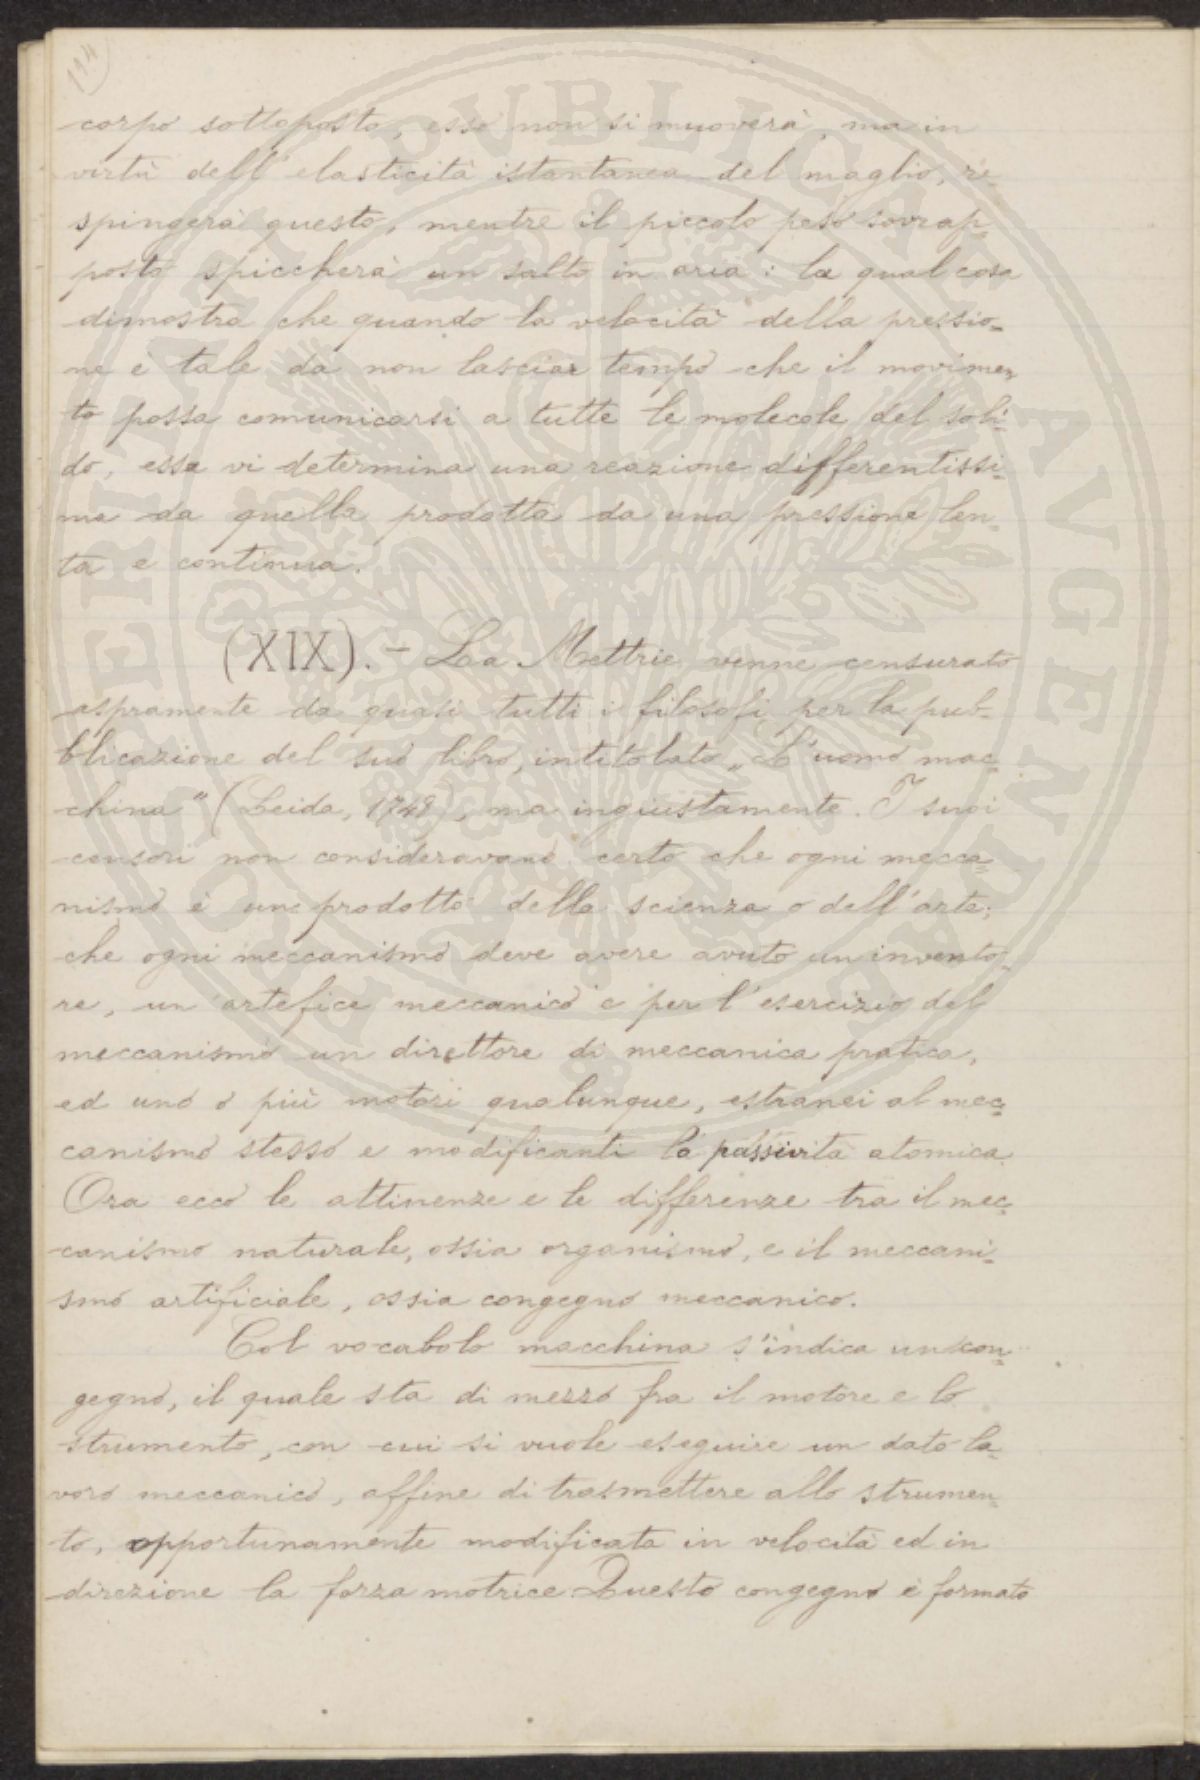 114
corpo sottoposto, esso non si muoverà, ma in
virtù dell'elasticità istantanea del maglio, re-
spingerà questo, mentre il piccolo peso sovrap-
posto spiccherà un salto in aria: la qual cosa
dimostra che quando la velocità della pressio-
ne è tale da non lasciar tempo che il movimen-
to possa comunicarsi a tutte le molecole del soli-
do, essa vi determina una reazione differentissi-
ma da quella prodotta da una pressione len-
ta e continua.
(XIX). - La Mettrie venne censurato
aspramente da quasi tutti i filosofi per la pub-
blicazione del suo libro, intitolato „L'uomo mac-
china" (Leida, 1748), ma ingiustamente. I suoi
censori non consideravano certo che ogni mecca-
nismo è un prodotto della scienza o dell'arte;
che ogni meccanismo deve avere avuto un invento-
re, un artefice meccanico e per l'esercizio del
meccanismo un direttore di meccanica pratica,
ed uno o più motori qualunque, estranei al mec-
canismo stesso e modificanti la passività atomica.
Ora ecco le attinenze e le differenze tra il mec-
canismo naturale, ossia organismo, e il meccani-
smo artificiale, ossia congegno meccanico.
Col vocabolo macchina s'indica un con-
gegno, il quale sta di mezzo fra il motore e lo
strumento, con cui si vuole eseguire un dato la-
voro meccanico, affine di trasmettere allo strumen-
to, opportunamente modificata in velocità ed in
direzione la forza motrice. Questo congegno è formato